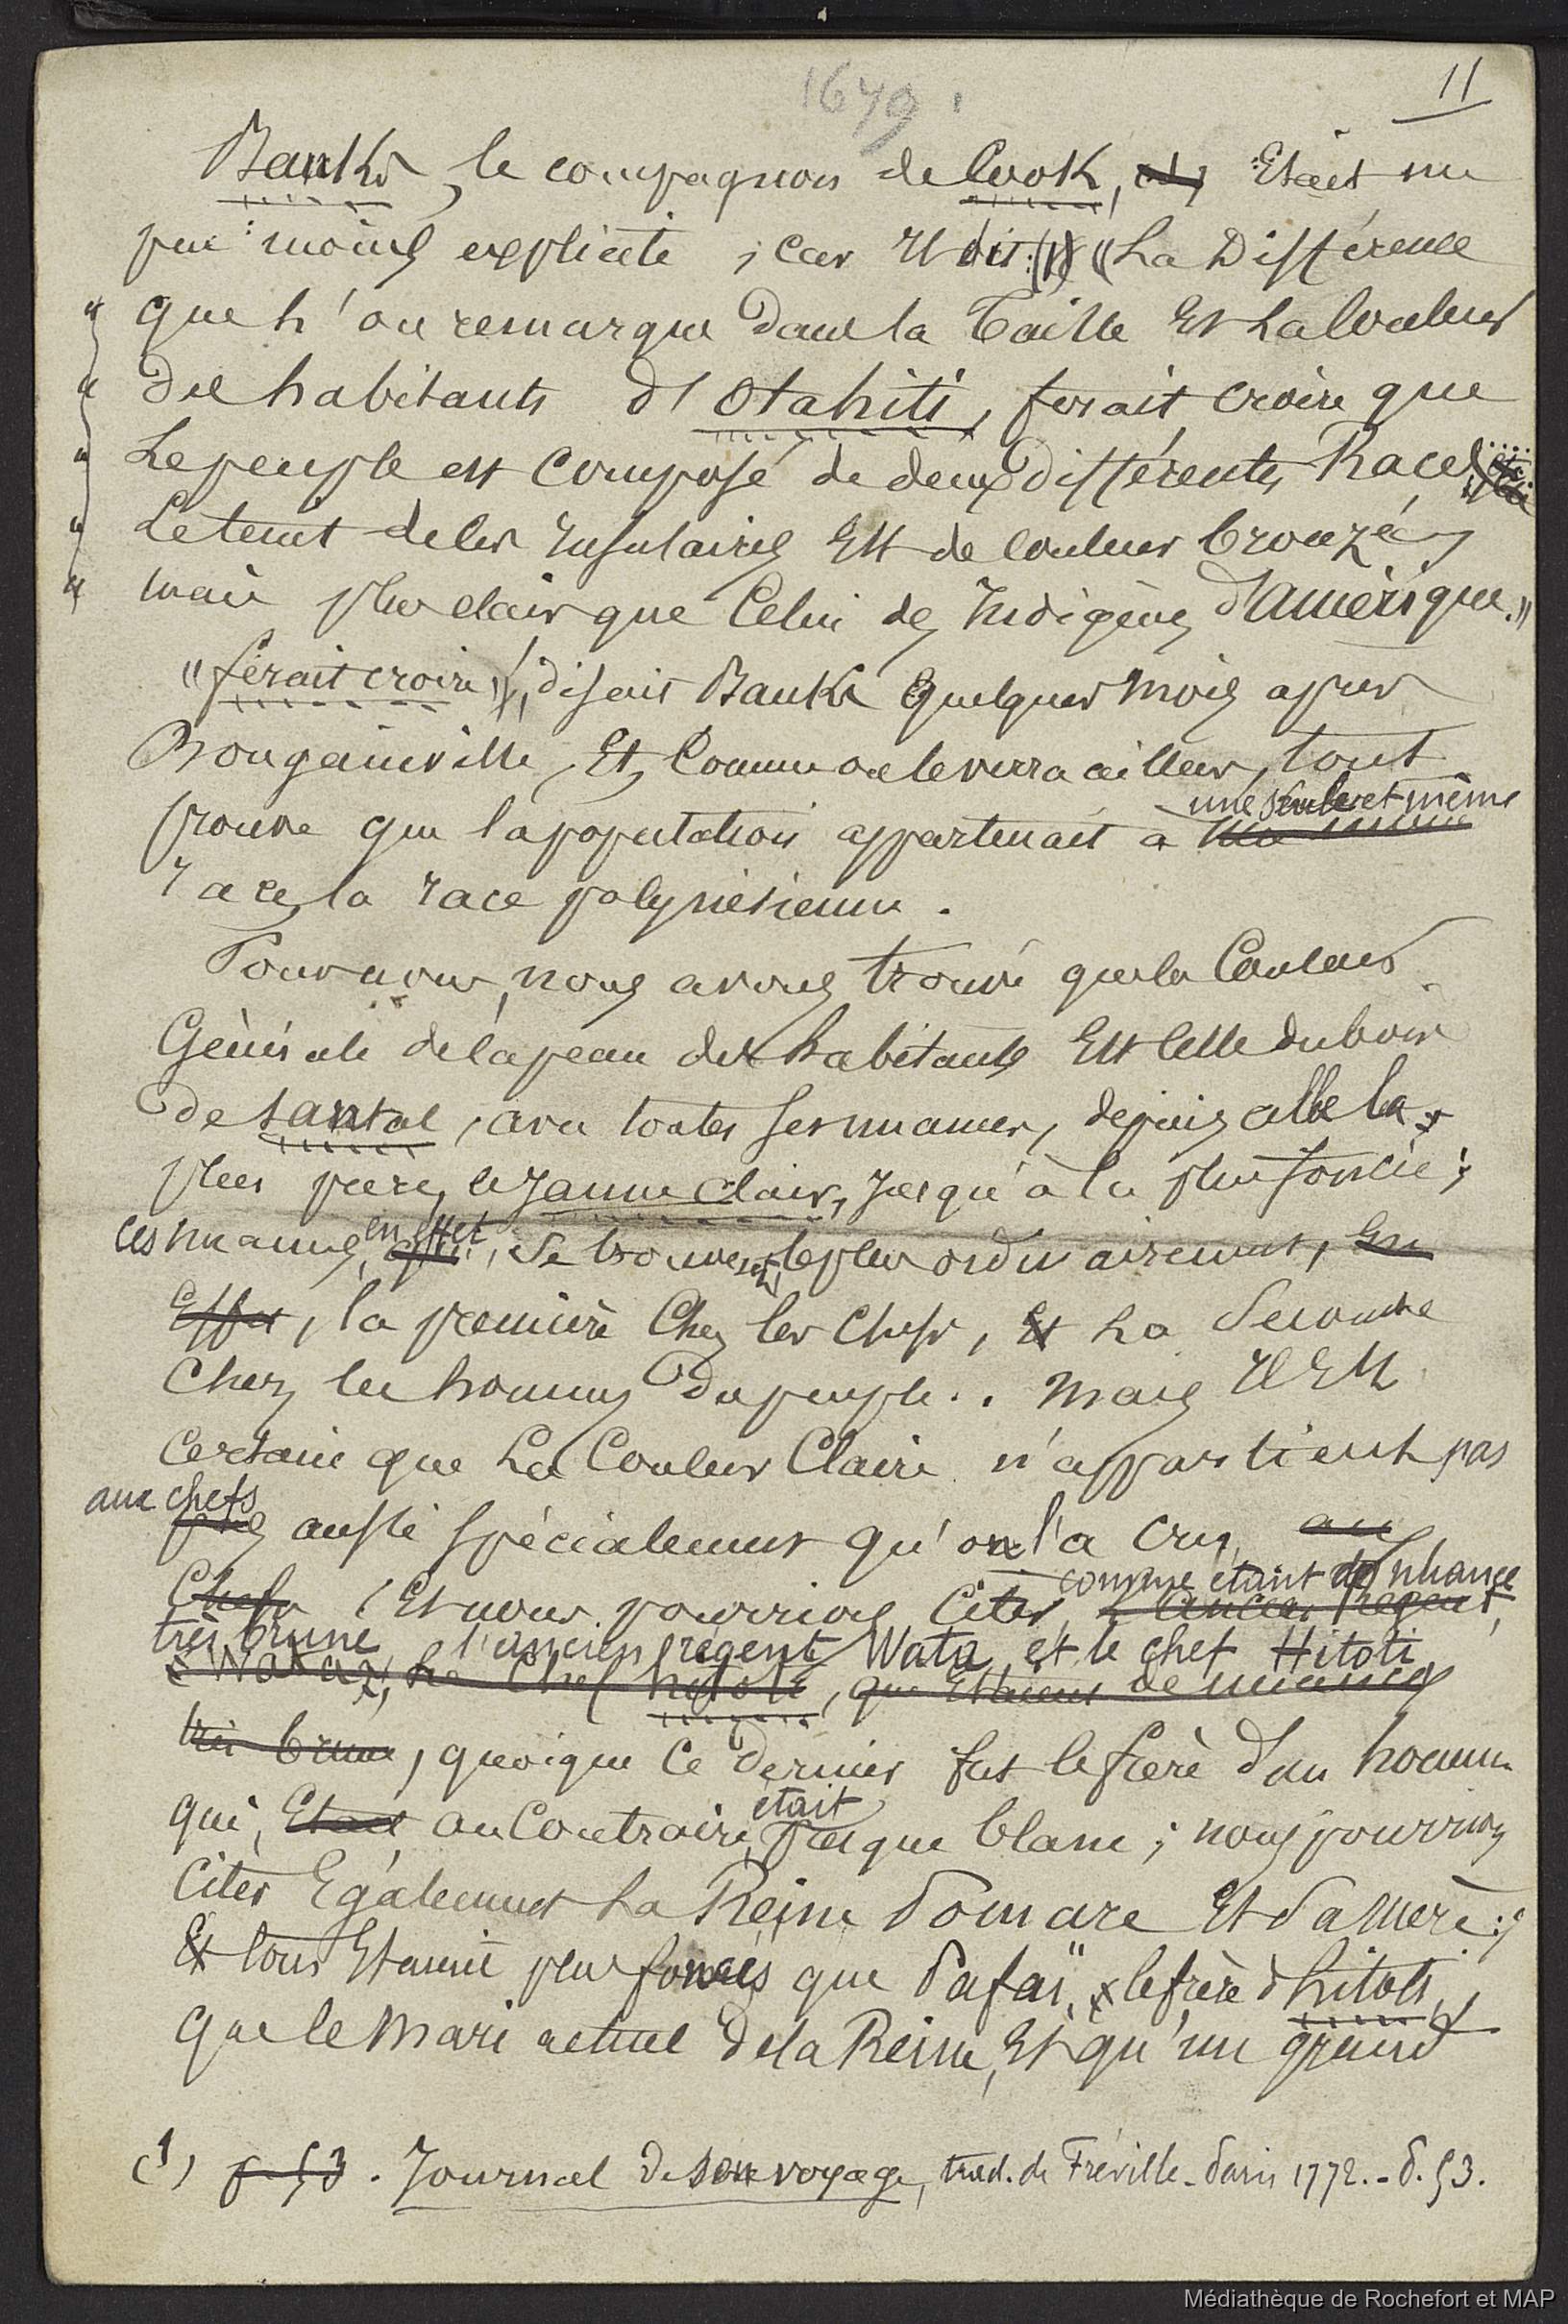 1679
11
Banks, le compagnon de Cook, Etait un
peu moins explicite ; car Il dit : (1) « La Différence
« que l'on remarque Dans la Taille Et La Couleur
« des habitants d'Otahiti, ferait croire que
« Le peuple est composé de deux différentes Races
« Le teint de ces Insulaires Est de couleur bronzée,
« mais plus clair que Celui des Indigènes d'Amérique. »
« ferait croire », disait Banks quelques mois après
Bougainville, Et, Comme on le verra ailleurs, tout
une seule et même
prouve que la population appartenait à une même
race, la race polynésienne.
Pour nous, nous avons trouvé que la Couleur
Générale de la peau des habitants Est Celle du bois
de santal, avec toutes ses nuances, depuis celle la
plus pure, le jaune clair, jusqu'à la plus foncée ;
en effet
ces nuances, se trouvent le plus ordinairement, En
Effet, la première Chez les Chefs, Et La Seconde
Chez les hommes du peuple.. Mais Il Est
Certain que La Couleur Claire n'appartient pas
aux chefs
pas aussi spécialement qu'on l'a cru, aux
comme étant de nuance
Chefs (Et nous pourrions Citer, l'ancien Régent,
très brune l'ancien régent Wata et le chef Hitoti
Wata, Le Chef hitoti, que Etaient de nuance
très brune, quoique Ce Dernier fut le frère d'un homme
était
qui, Etait au Contraire, presque blanc ; nous pourrions
Citer Egalement La Reine Pomare Et Sa Mère ;
Et tous Etaient plus foncés que Pafaï, le frère d'hitoti,
que le Mari actuel de la Reine, Et qu'un grand
(1) p. 53. Journal de son voyage, trad. de Fréville - Paris 1772. - P. 53.
Médiathèque de Rochefort et MAP